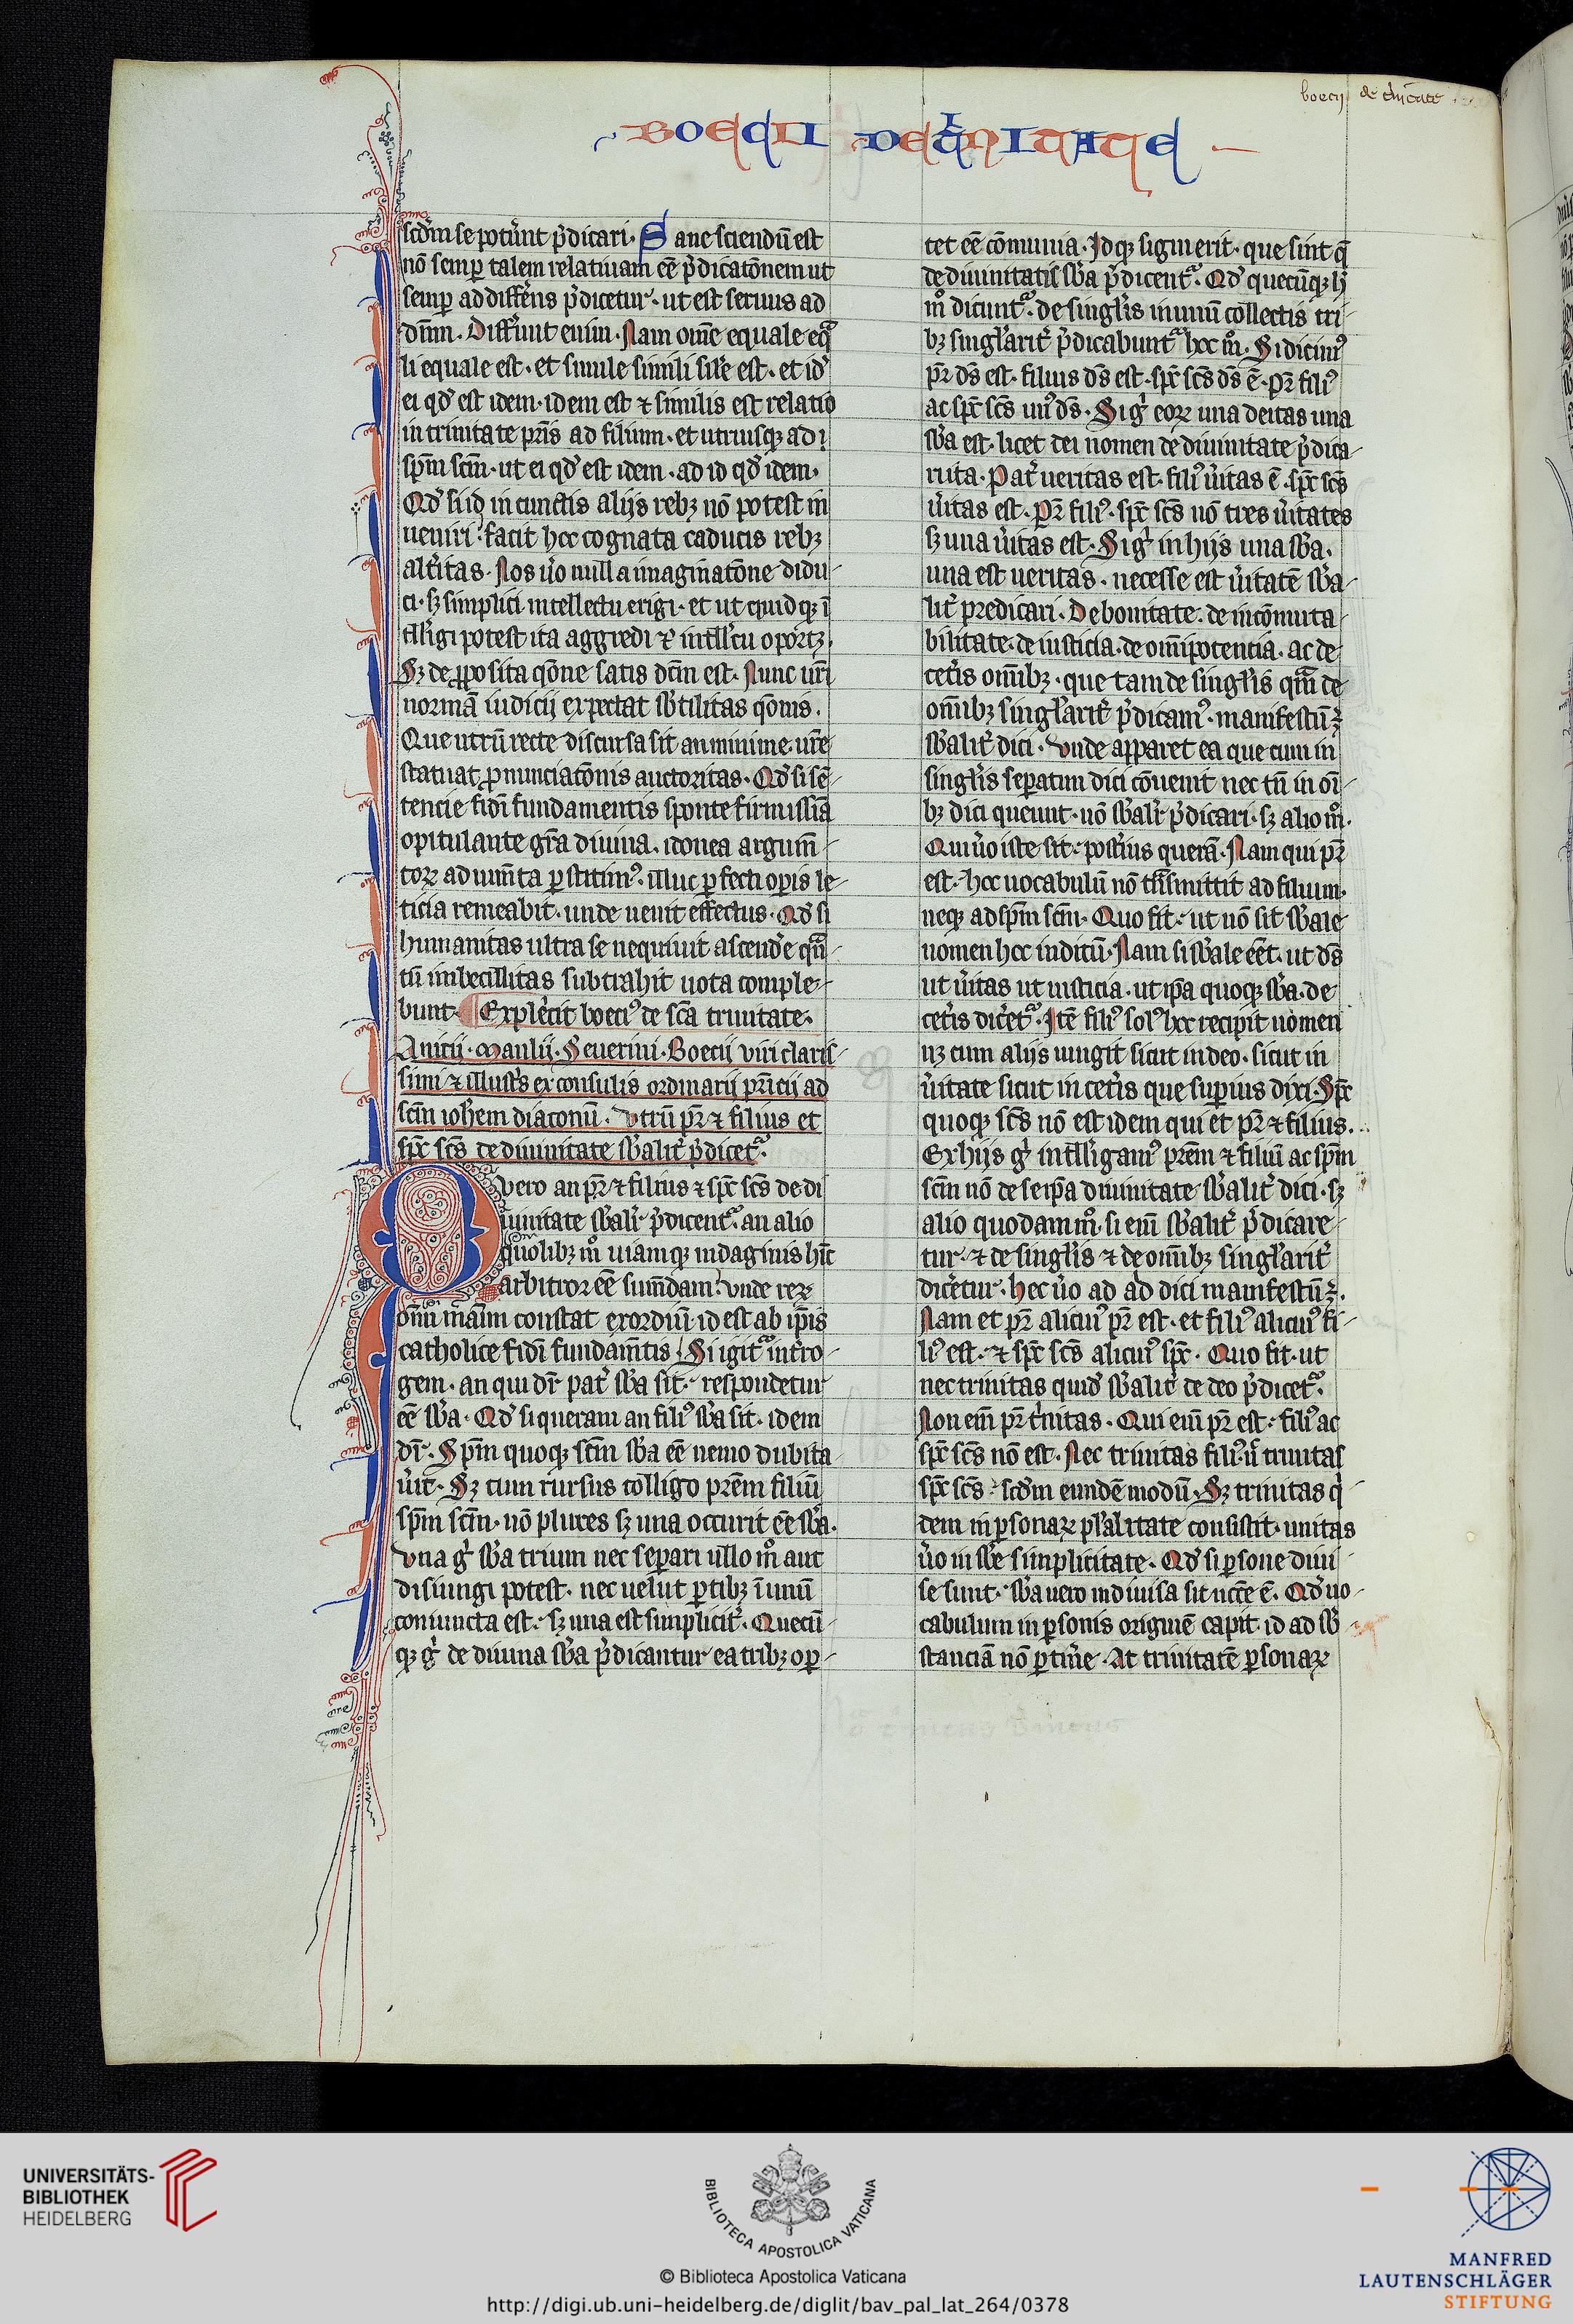 boecij de t'nitate
BOECII DE TRINITATE
scd'm se pot'unt p'dicari. Sane sciendū est
nō semp talem relatiuam eē p'dicatōnem ut
semp ad diff'ens p'dicetur. ut est seruus ad
dn̄m. Diff'unt enim. Nam om̄e equale eq̄
li equale est. et simile simili sil'e est. et id'
ei qd' est idem. idem est ⁊ similis est relatio
in trinitate pr̄is ad filium. et utriusq; ad
sp̄m sc̄m. ut ei qd' est idem. ad id qd' idem.
Qd' si id in cunctis alijs reb; nō potest in
ueniri. facit hec cognata caducis reb;
alt'itas. Nos u'o nulla imaginatōne didu
ci. s; simplici intellectu erigi. et ut quidq; ī
tll'igi potest ita aggredi ⁊ intll'tu oport;.
S; de p̄posita q̄one satis dc̄m est. Nunc ur̄i
normā iudicij expectat sb'tilitas q̄onis.
Que utrū recte discursa sit an minime. ur̄e
statuat p̄nunciatōnis auctoritas. Qd' si sē
tencie fidī fundamentis sponte firmissīa
opitulante gr̄a diuina. idonea argum̄
toꝝ adium̄ta p̄stitim'. illuc p̄fecti op̄is le
ticia remeabit. unde uenit effectus. Qd' si
humanitas ultra se nequiuit ascend'e q̄n
tū imbecillitas subtrahit uota comple
bunt. Expl'icit boeci' de sc̄a trinitate.
Anicij. Manlij. Seuerini. Boecij viri claris
simi ⁊ illust's ex consulis ordinarij pr̄icij ad
sc̄m ioh'em diaconū. vtrū pr̄ ⁊ filius et
sp̄c sc̄s de diuinitate sb'alit' p'dicet'.
Q vero an pr̄ ⁊ filius ⁊ sp̄c sc̄s de di
uinitate sb'alit' p'dicent'. an alio
quolib; m° uiamq; indaginis hīc
arbitror eē sum̄dam. vnde reꝝ
om̄iū manīm constat exordiū. id est ab ip̄is
catholice fidī fundam̄tis. Si igit' int'ro
gem. an qui dr̄ pat' sb'a sit. respondetur
eē sb'a. Qd' si queram an fili' sb'a sit. idem
dr̄. Sp̄m quoq; sc̄m sb'a eē nemo dubita
u'it. S; cum rursus colligo pr̄em filiū
sp̄m sc̄m. nō plures s; una occurit eē sb'a.
vna g' sb'a trium nec separi ullo m° aut
disiungi potest. nec uelut p̄tib; ī unū
coniuncta est. s; una est simplicit'. Quecū
q; g' de diuina sb'a p'dicantur ea trib; op̄
tet eē cōmunia. Idq; signi erit. que sint q̄
de diuinitatis sb'a p'dicent'. Qd' quecūq; h'
m° dicunt'. de singl'is in unū collectis tri
b; singl'arit' p'dicabunt' hoc m°. Si dicim'
pr̄ ds̄ est. filius ds̄ est. sp̄c sc̄s ds̄ ē. pr̄ fili'
ac sp̄c sc̄s un' ds̄. Si g' eoꝝ una deitas una
sb'a est. licet dei nomen de diuinitate p'dica
ri ita. Pat' ueritas est. fili' u'itas ē. sp̄c sc̄s
u'itas est. Pr̄ fili'. sp̄c sc̄s nō tres u'itates
s; una u'itas est. Si g' in hijs una sb'a.
una est ueritas. necesse est u'itatē sb'a
lit' predicari. De bonitate. de incōmuta
bilitate. de iusticia. de om̄ipotentia. ac de
cet'is om̄ib;. que tam de singl'is qm̄ de
om̄ib; singl'arit' p'dicam'. manifestū ē
sb'alit' dici. vnde apparet ea que cum in
singl'is sep̄atim dici cōuenit nec tn̄ in oī
b; dici queunt. nō sb'alit' p'dicari. s; alio m°.
Qui u'o iste sit. post'ius querā. Nam qui pr̄
est. hoc uocabulū nō t̄nsmittit ad filium.
neq; ad sp̄m sc̄m. Quo fit. ut nō sit sb'ale
nomen hoc inditū. Nam si sb'ale eēt. ut ds̄
ut u'itas ut iusticia. ut ip̄a quoq; sb'a. de
cet'is dic'et'. Itē fili' sol' hoc recipit nomen
n; cum alijs iungit sicut in deo. sicut in
u'itate sicut in cet'is que superius dixi. Sp̄c
quoq; sc̄s nō est idem qui et pr̄ ⁊ filius.
Ex hijs g' intll'igam' pr̄em ⁊ filiū ac sp̄m
sc̄m nō de se ip̄a diuinitate sb'alit' dici. s;
alio quodam m°. si em̄ sb'alit' p'dicare
tur. ⁊ de singl'is ⁊ de om̄ib; singl'arit'
dic'etur. hec u'o ad ad dici manifestū ē.
Nam et pr̄ alicui' pr̄ est. et fili' alicui' fi
li' est. ⁊ sp̄c sc̄s alicui' sp̄c. Quo fit. ut
nec trinitas quid' sb'alit' de deo p'dicet'.
Non em̄ pr̄ t'nitas. Qui em̄ pr̄ est. fili' ac
sp̄c sc̄s nō est. Nec trinitas fili'. n̄ trinitas
sp̄c sc̄s. scd'm eundē modū. S; trinitas q'
dem in p̄sonaꝝ pl'alitate consistit. unitas
u'o in sb'e simplicitate. Qd' si p̄sone diui
se sunt. sb'a uero indiuisa sit nc̄ce ē. Qd' uo
cabulum in p̄sonis originē capit. id ad sb'
stanciā nō p̄tin'e. At trinitatē p̄sonaꝝ
UNIVERSITÄTS-
BIBLIOTHEK
HEIDELBERG
BIBLIOTECA APOSTOLICA VATICANA
© Biblioteca Apostolica Vaticana
http://digi.ub.uni-heidelberg.de/diglit/bav_pal_lat_264/0378
MANFRED
LAUTENSCHLÄGER
STIFTUNG